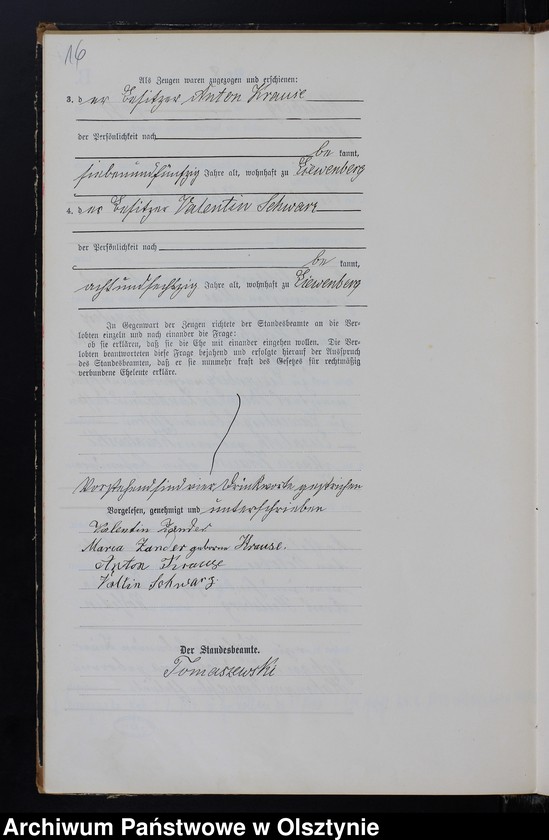 16
Als Zeugen waren zugezogen und erschienen:
3. der Besitzer Anton Krause
der Persönlichkeit nach
be kannt,
siebenundfünfzig Jahre alt, wohnhaft zu Liewenberg
4. der Besitzer Valentin Schwarz
der Persönlichkeit nach
be kannt,
achtundsechszig Jahre alt, wohnhaft zu Liewenberg
In Gegenwart der Zeugen richtete der Standesbeamte an die Ver-
lobten einzeln und nach einander die Frage:
ob sie erklären, daß sie die Ehe mit einander eingehen wollen. Die Ver-
lobten beantworteten diese Frage bejahend und erfolgte hierauf der Ausspruch
des Standesbeamten, daß er sie nunmehr kraft des Gesetzes für rechtmäßig
verbundene Eheleute erkläre.
Vorstehend sind vier Druckworte gestrichen
Vorgelesen, genehmigt und unterschrieben
Valentin Zander
Maria Zander geborene Krause.
Anton Krause
Valtin Schwarz
Der Standesbeamte.
Tomaszewski
Archiwum Państwowe w Olsztynie